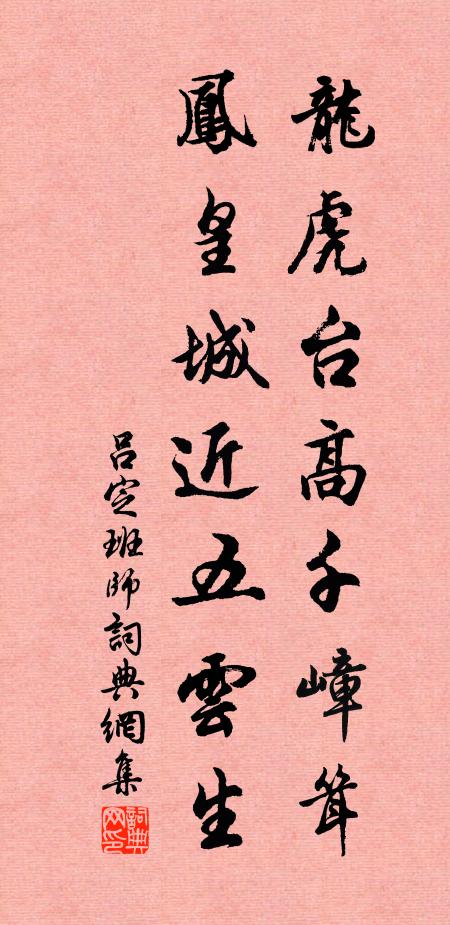 龍虎台高千嶂聳
鳳皇城近五雲生
呂定班師詞典網集
詞典网印